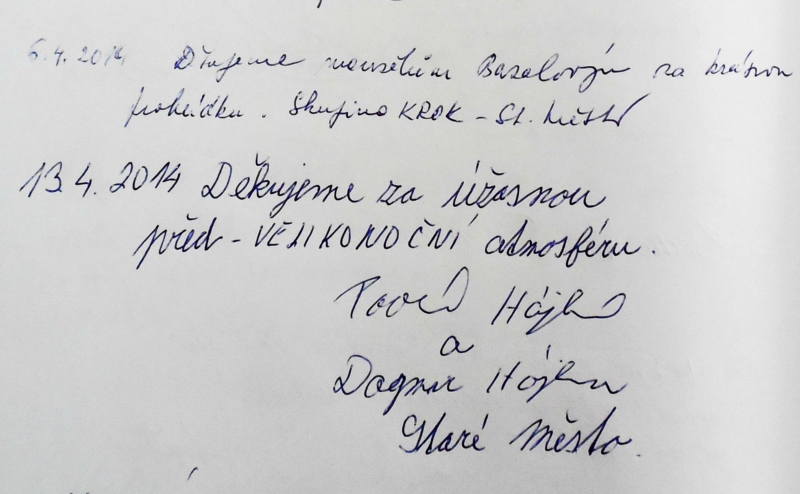 6.4.2014 Děkujeme manželům Bazalovým za krásnou
pohádku. Skupina KROK - St. Město
13.4. 2014 Děkujeme za úžasnou
před - VELIKONOČNÍ atmosféru.
a
Dagmar
Staré Město